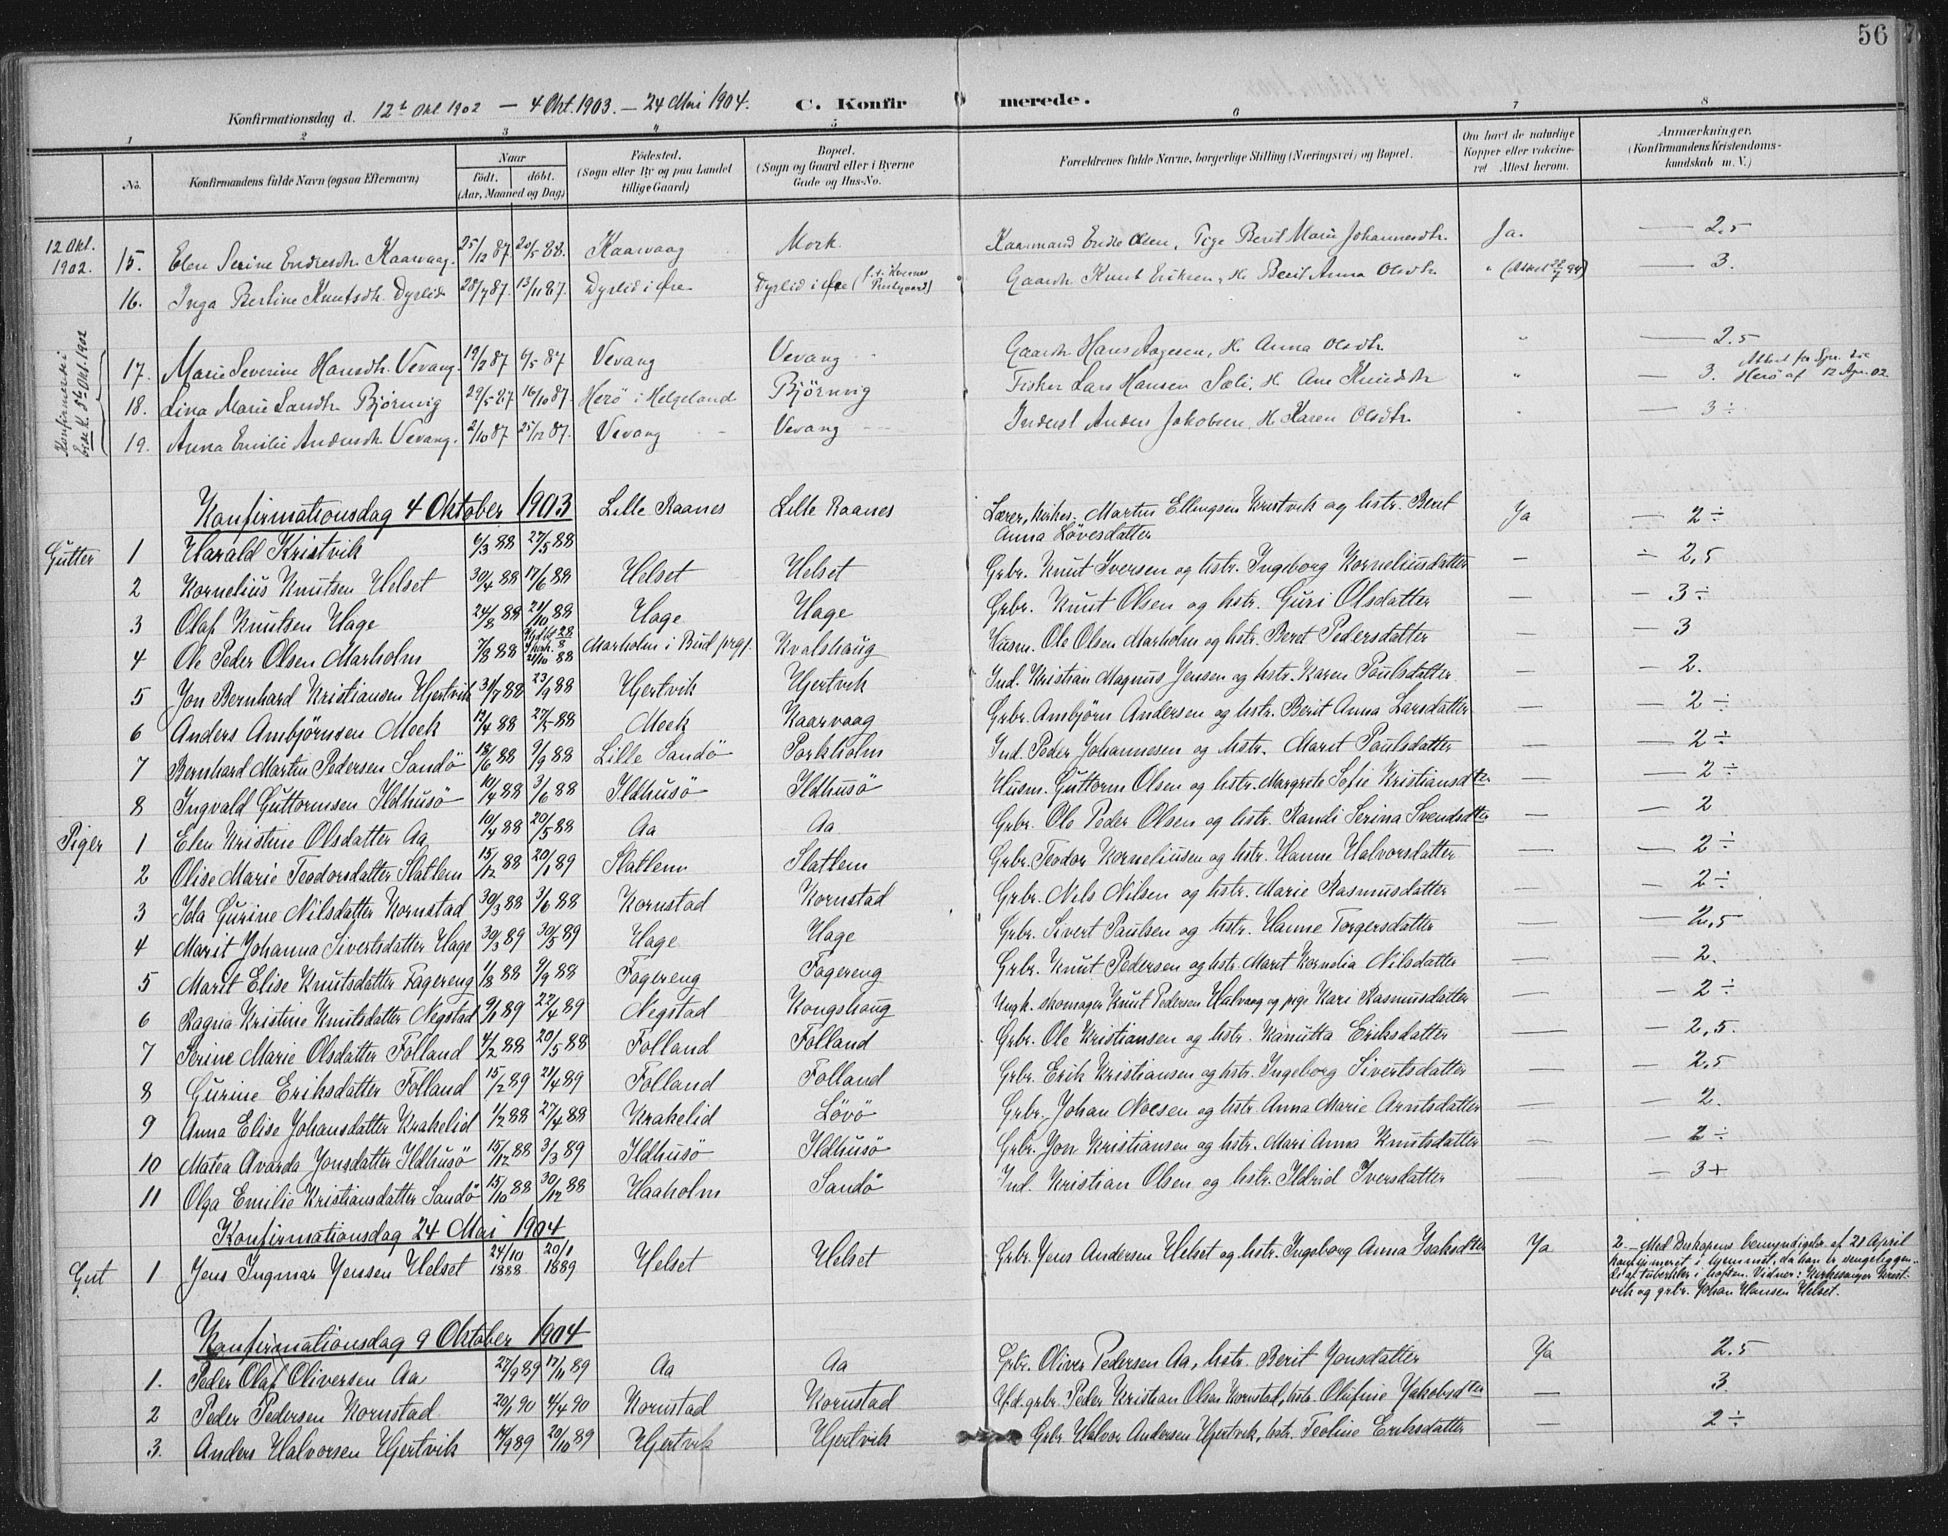 56
Konfirmationsdag d. 12t Okt 1902 – 4 Okt. 1903. – 24 Mai 1904. C. Konfirmerede.
1 2 3 4 5 6 7 8
No. Konfirmandens fulde Navn (ogsaa Efternavn) Naar født. døbt. (Aar, Maaned og Dag) Fødested. (Sogn eller By og paa Landet tillige Gaard) Bopæl. (Sogn og Gaard eller i Byerne Gade og Hus-No. Forældrenes fulde Navne, borgerlige Stilling (Næringsvei) og Bopæl. Om havt de naturlige Kopper eller vaccineret Attest herom. Anmærkninger. (Konfirmandens Kristendomskundskab m. V.)
12 Okt. 1902. 15. Elen Serine Endresdtr. Kaarvaag. 25/12 87 20/5 88. Kaarvaag Mork Kaarmand Endre Olsen, Pige Berit Marie Johannesdtr. Ja. — 2,5
16. Inga Berline Knutsdtr. Dyrlid 28/7 87. 13/11 87. Dyrlid i Øre Dyrlid i Øre (f.t. Kvernes Prestgaard) Gaardbr. Knut Eriksen, H. Berit Anna Olsdtr. " — 3.
Konfirmerede i 5te Okt. 1902
17. Marie Severine Hansdtr. Vevang. 19/2 87 6/5 87 Vevang Vevang Gaardbr. Hans Aagesen, H. Anna Olsdtr. " — 2,5
18. Lina Marie Larsdtr. Bjørnvig 29/5 87 16/10 87 Herø i Helgeland Bjørnvig Fisker Lars Hansen Sæli, H. Ane Knudsdtr " — 3. Attest fra Spr. til Herø af 12 Apr. 02
19. Anna Emilie Andersdtr. Vevang. 2/10 87 25/12 87. Vevang Vevang Inderst Anders Jakobsen, H. Karen Olsdtr. " — 3 ÷
Konfirmationsdag 4 Oktober 1903
Gutter 1 Harald Kristvik 6/3 88 27/5 88 Lille Raanes Lille Raanes Lærer, kirkes. Martin Ellingsen Kristvik og hstr. Beret Anna Løvesdatter Ja — 2 ÷
2 Kornelius Knutsen Helset 30/4 88 17/6 88 Helset Helset Grbr. Knut Iversen og hstr. Ingeborg Korneliusdatter — ÷ 2,5
3 Olaf Knutsen Hage 24/8 88 21/10 88 Hage Hage Grbr. Knut Olsen og hstr. Guri Olsdatter — — 3 ÷
4 Ole Peder Olsen Marholm 7/8 88 21/10 88 Marholm i Bud prgj. Kvalshaug Husm. Ole Olsen Marholm og hstr. Beret Pedersdatter — — 3
5 Jon Bernhard Kristiansen Hjertvik 31/7 88 23/9 88 Hjertvik Hjertvik Ind. Kristian Magnus Jensen og hstr. Karen Paulsdatter — — 2.
6 Anders Ambjørnsen Meek 12/4 88 27/5 88 Meek Kaarvaag Grbr. Ambjørn Andersen og hstr. Berit Anna Larsdatter — — 2 ÷
7 Bernhard Martin Pedersen Sandø 18/6 88 9/9 88 Lille Sandø Torkholm Ind. Peder Johannesen og hstr. Marit Paulsdatter — — 2 ÷
8 Ingvald Guttormsen Ildhusø 10/4 88 3/6 88 Ildhusø Ildhusø Husm. Guttorm Olsen og hstr. Margrete Sofie Kristiansdtr — — 2 ÷
Piger 1 Elen Kristine Olsdatter Aa 10/4 88 20/5 88 Aa Aa Grbr. Ole Peder Olsen og hstr. Randi Serina Svendsdtter — — 2
2 Olise Marie Teodorsdatter Slatlem 15/12 88 20/1 89 Slatlem Slatlem Grbr. Teodor Korneliusen og hstr. Hanne Halvorsdatter — — 2 ÷
3 Ida Gurine Nilsdatter Kornstad 30/3 88 3/6 88 Kornstad Kornstad Grbr. Nels Nilsen og hstr. Marie Rasmusdatter — — 2 ÷
4 Marit Johanna Sivertsdatter Hage 30/3 89 30/5 89 Hage Hage Grbr. Sivert Paulsen og hstr. Hanne Torgersdatter — — 2,5
5 Marit Elise Knutsdatter Fagereng 1/8 88 9/9 88 Fagereng Fagereng Grbr. Knut Pedersen og hstr. Marit Kornelia Nilsdatter — — 2.
6 Ragna Kristine Knutsdatter Negstad 9/1 89 22/4 89 Negstad Kongshaug Ungk. skomager Knut Pedersen Halvaag og pige Kari Rasmusdatter — — 2 ÷
7 Serine Marie Olsdatter Folland 4/2 88 20/5 88 Folland Folland Grbr. Ole Kristiansen og hstr. Kanutta Eriksdatter — — 2,5.
8 Gurine Eriksdatter Folland 15/2 89 21/4 89 Folland Folland Grbr. Erik Kristiansen og hstr. Ingeborg Sivertsdatter — — 2,5
9 Anna Elise Johansdatter Krakelid 1/2 88 27/4 88 Krakelid Løvø Grbr. Johan Noesen og hstr. Anna Marie Arntsdatter — — 2.
10 Matea Avarda Jonsdatter Ildhusø 15/12 88 3/3 89 Ildhusø Ildhusø Grbr. Jon Kristiansen og hstr. Mari Anna Knutsdatter — — 2 ÷
11 Olga Emilie Kristiansdatter Sandø 15/10 88 30/12 88 Haaholm Sandø Ind. Kristian Olsen og hstr. Ildrid Iversdatter — — 3 +
Konfirmationsdag 24 Mai 1904
Gut 1 Jens Ingmar Jensen Helset 24/10 1888 20/1 1889 Helset Helset Grbr. Jens Andersen Helset og hstr. Ingeborg Anna Isaksdtter Ja 2. – Med Biskopens bemyndigelse af 21 April
konfirmeret i hjemmet, da han er sengeliggen-
de af tuberkler i hoften. Vidner: Kirkesanger Krist-
vik og grbr. Johan Hansen Helset.
Konfirmationsdag 9 Oktober 1904
1. Peder Olaf Oliversen Aa 27/9 89 17/11 89 Aa Aa Grbr. Oliver Pedersen Aa, hstr. Berit Jonsdatter Ja 2.5
2 Peder Pedersen Kornstad 20/1 90 4/4 90 Kornstad Kornstad Afd. grbr. Peder Kristian Olsen Kornstad, hstr. Olufine Jakobsdtter — 3
3. Anders Halvorsen Hjertvik 14/9 89 20/10 89 Hjertvik Hjertvik Grbr Halvor Andersen Hjertvik, hstr. Teoline Eriksdatter — 2 ÷